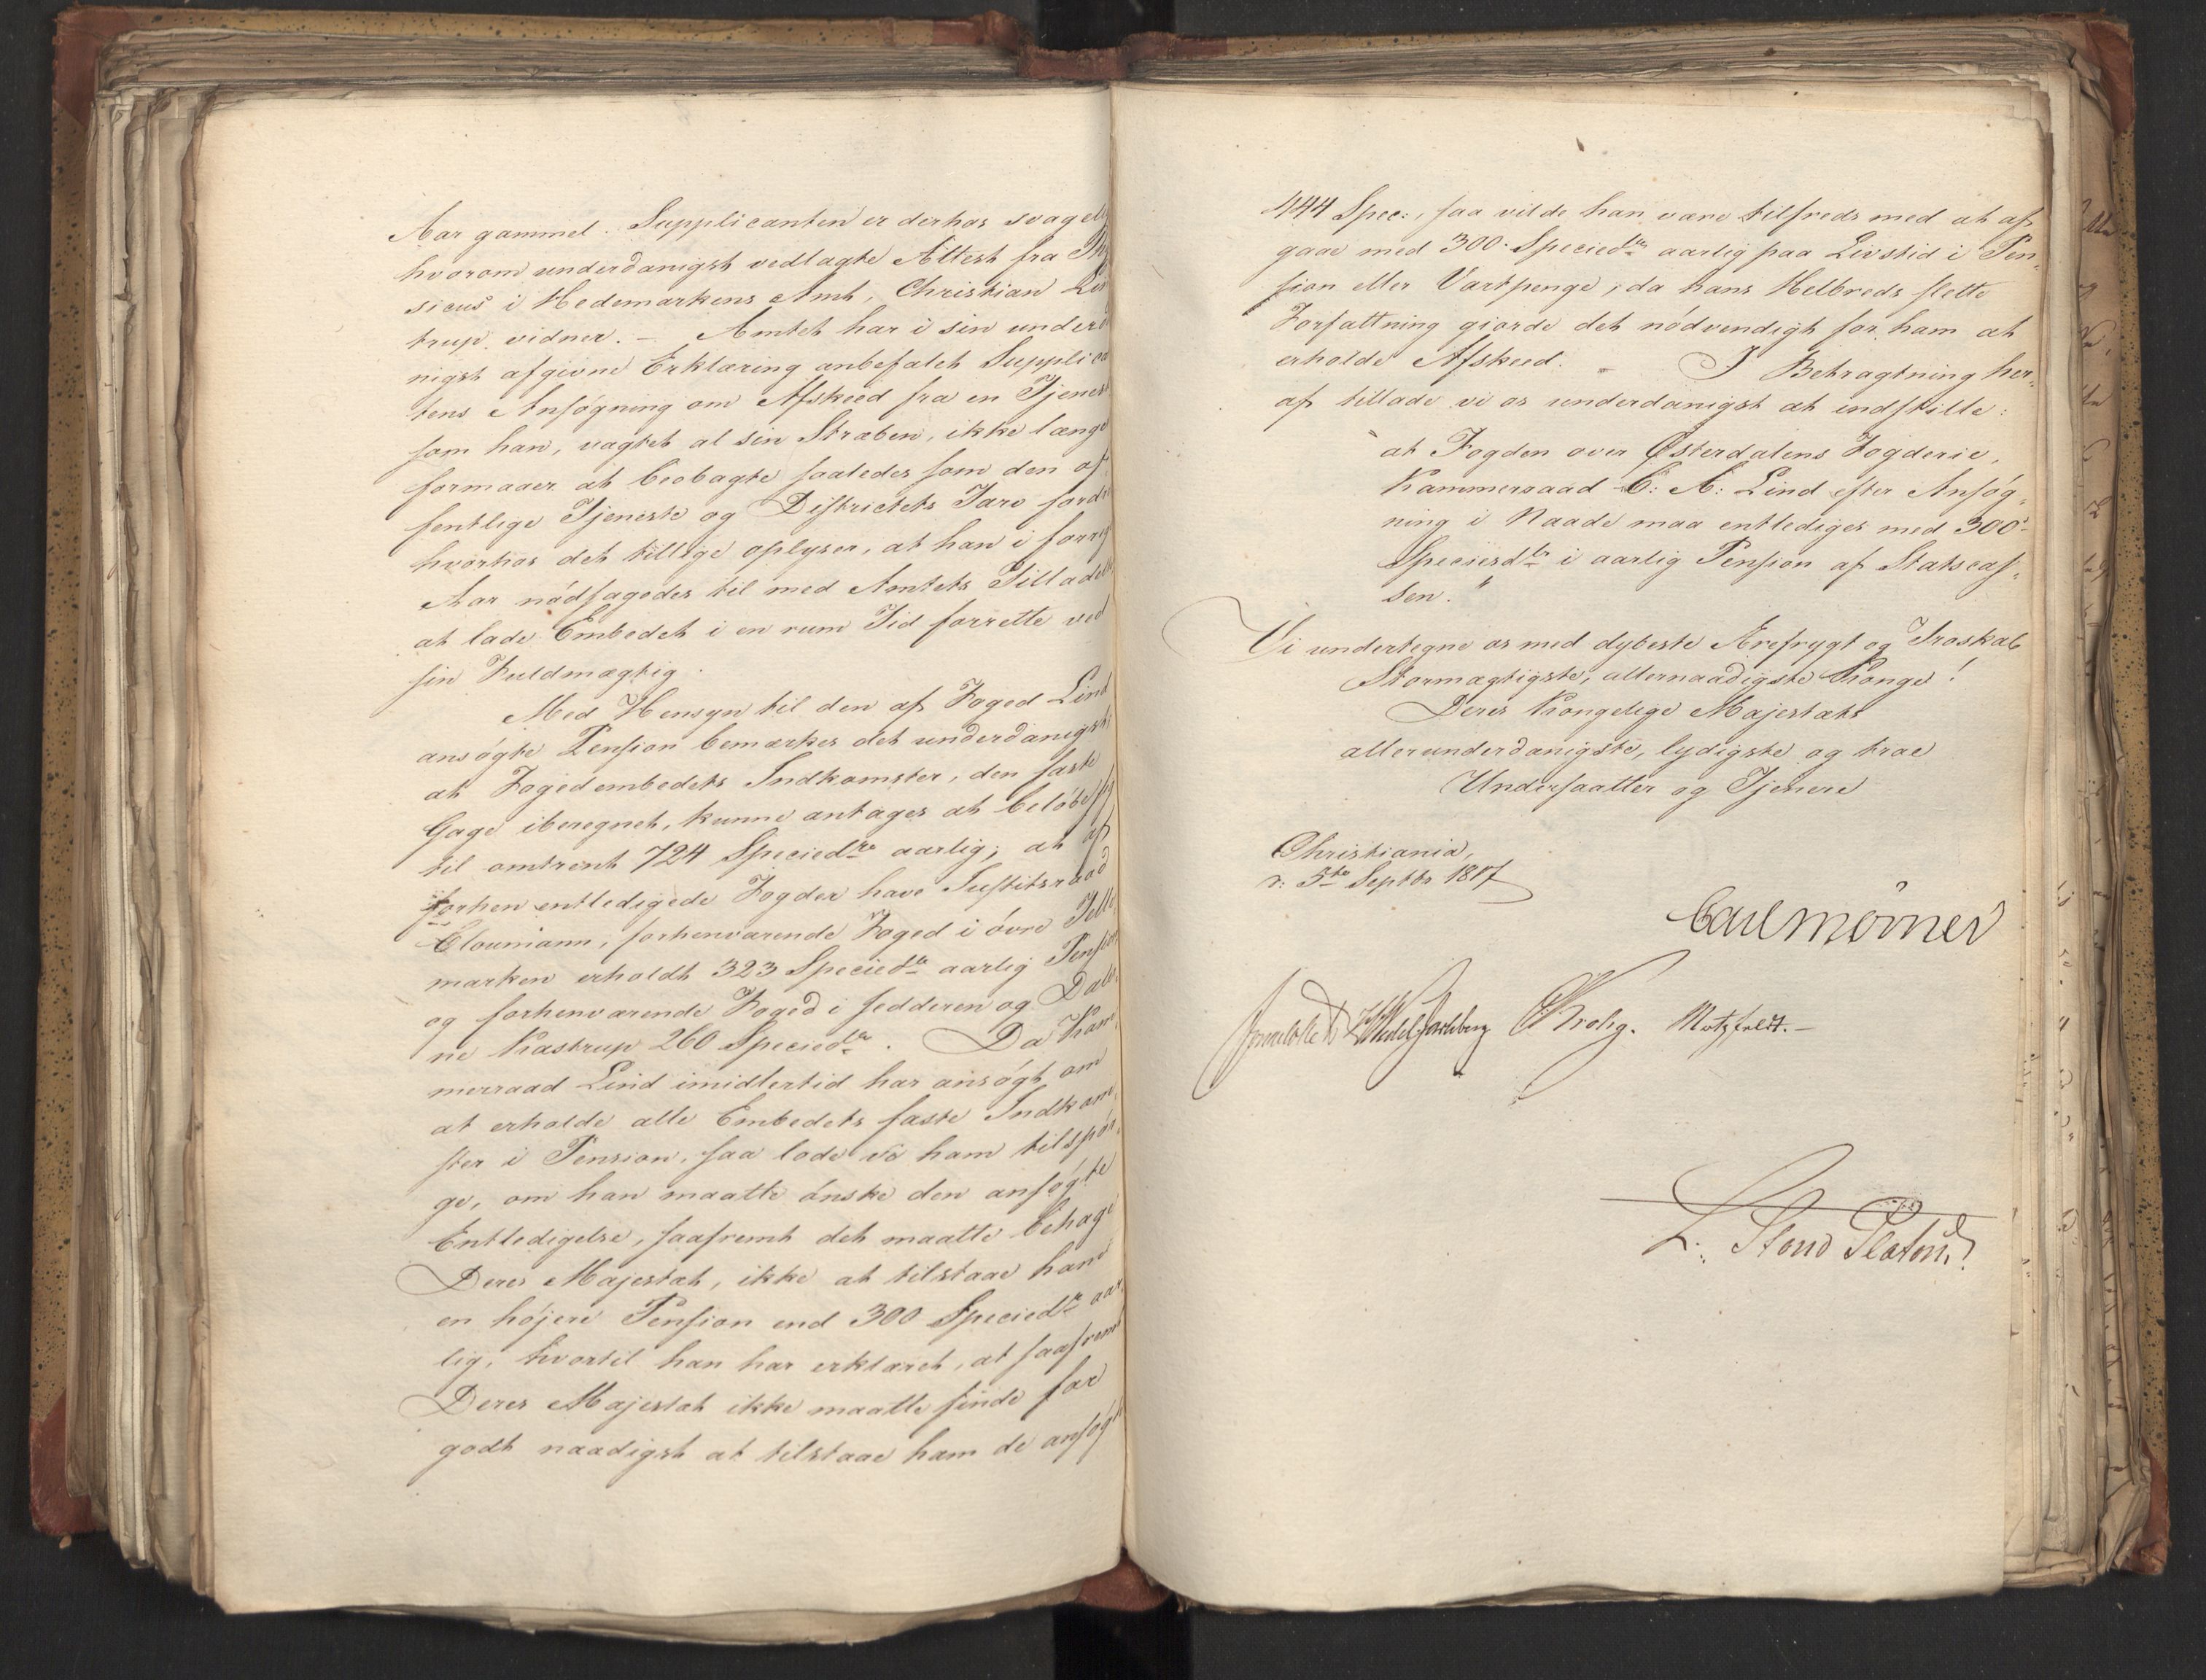 Aar gammel. Supplicanten er derhos svagel
hvorom underdanigst vedlagte Attest fra Phy
sicus i Hedemarkens Amt, Christian
trup vidner. — Amtet har i sin underd
nigst afgivne Erklæring anbefalet Supplica
tens Ansøgning om Afskeed fra en Tjenes
som han, uagtet al sin Stræben, ikke længe
formaaer at beobagte saaledes som den of
fentlige Tjeneste og Districtets Tarv fordr
hvorhos det tillige oplyser, at han i forrig
Aar nødsagedes til med Amtets Tilladel
at lade Embedet i en rum Tid forrette ved
sin Fuldmægtig.
Med Hensyn til den af Foged Lind
ansøgte Pension bemærkes det underdanigst
at Fogedembedets Indkomster, den faste
Gage iberegnet, kunne antages at beløbe sig
til omtrent 724 Speciedre aarlig; at af
forhen entledigede Fogder have Justitsraad
Cloumann, forhenværende Foged i øvre Telle
marken erholdt 323 Speciedlr aarlig Pension
og forhenværende Foged i Jedderen og Dale
ne Kastrup 260 Speciedlr. Da Kam
merraad Lind imidlertid har ansøgt om
at erholde alle Embedets faste Indkom
ster i Pension, saa lode vi ham tilspør-
ge, om han maatte ønske den ansøgte
Entledigelse, saafremt det maatte behage
Deres Majestæt, ikke at tilstaae ham
en højere Pension end 300 Speciedlr aar,
lig, hvortil han har erklæret, at saafremt
Deres Majestæt ikke maatte finde for
godt naadigst at tilstaae ham de ansøgt
444 Spec:, saa vilde han være tilfreds med at af
gaae med 300 Speciedlr aarlig paa Livstid i Pen,
sion eller Vartpenge, da hans Helbreds slette
Forfattning giorde det nødvendigt for ham at
erholde Afskeed. - I Betragtning her,
af tillade vi os underdanigst at indstille:
at Fogden over Østerdalens Fogderie,
Kammerraad C: A: Lind efter Ansøg,
ning i Naade maa entlediges med 300
Speciesdlr i aarlig Pension af Statscas,
sen."
Vi undertegne os med dybeste Ærefrygt og Troskab
Stormægtigste, allernaadigste Konge!
Deres Kongelige Majestæts
allerunderdanigste, lydigste og troe
Undersaatter og Tjenere
Christiania,
d: 5te Septbr 1817
Carl Mörner
Sommelhielm HWedel Jarlsberg CKrohg. Motzfeldt. —
L. Stoud Platou.